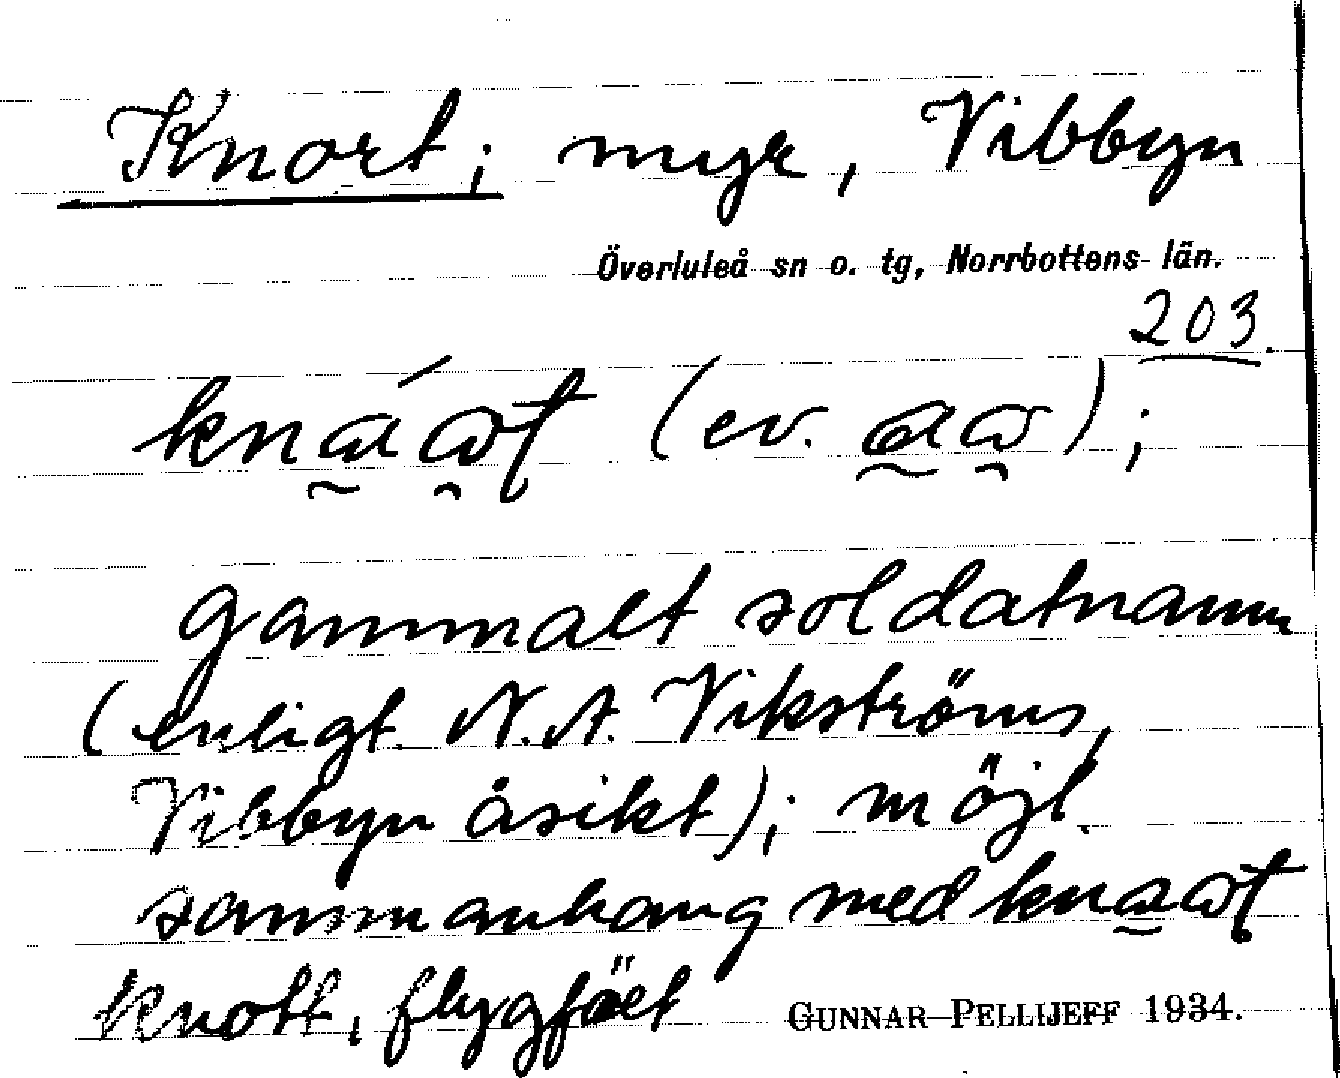 Knort; myr, Vibbyn
Överluleå sn o. tg, Norrbottens län.
203.
(ev.
gammalt soldatnamn
(enligt N. A. Vikströms,
Vibbyn åsikt); möjl.
sammanhang med
knott, flygfäet
GUNNAR PELLIJEFF 1934.